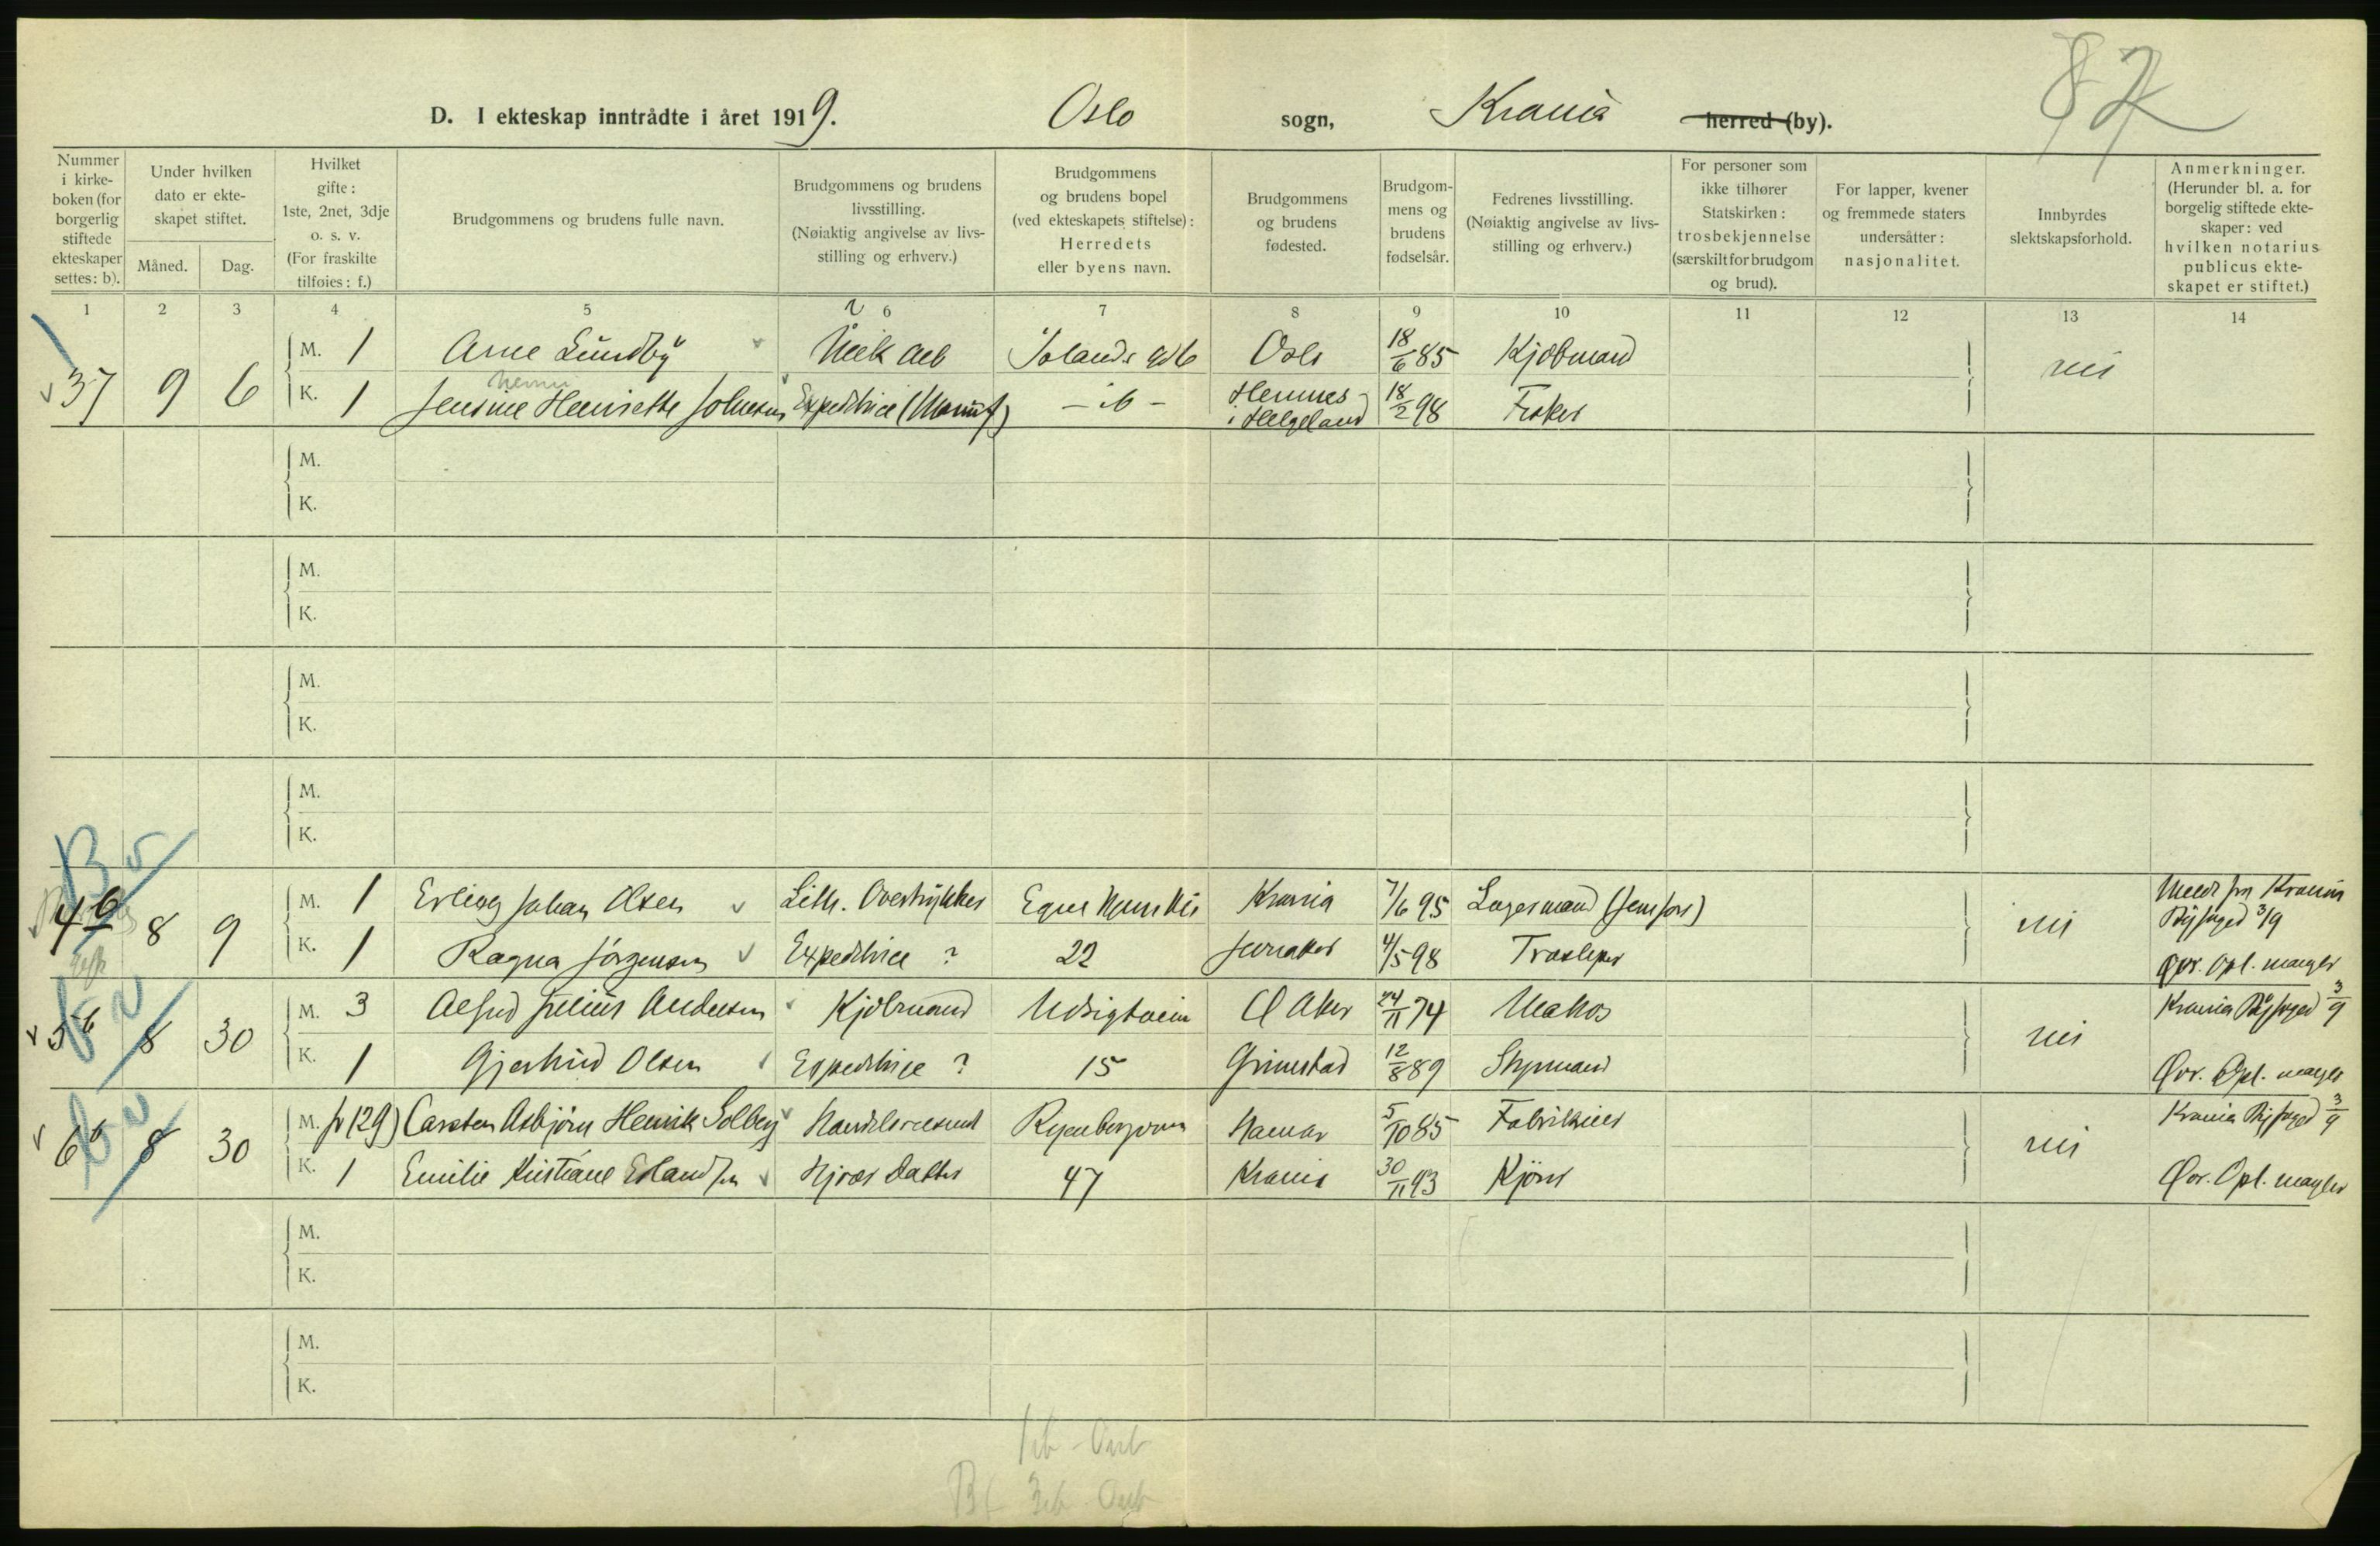 87
D. I ekteskap inntrådte i året 1919. Oslo sogn, Krania herred (by).
Nummer i kirkeboken (for borgerlig stiftede ekteskaper settes: b).
Under hvilken dato er ekteskapet stiftet.
Måned. Dag.
Hvilket gifte: 1ste, 2net, 3dje o. s. v. (For fraskilte tilføies: f.)
Brudgommens og brudens fulle navn.
Brudgommens og brudens livsstilling. (Nøiaktig angivelse av livsstilling og erhverv.)
Brudgommens og brudens bopel (ved ekteskapets stiftelse): Herredets eller byens navn.
Brudgommens og brudens fødested.
Brudgommens og brudens fødselsår.
Fedrenes livsstilling. (Nøiaktig angivelse av livsstilling og erhverv.)
For personer som ikke tilhører Statskirken: trosbekjennelse (særskilt for brudgom og brud).
For lapper, kvener og fremmede staters undersåtter: nasjonalitet.
Innbyrdes slektskapsforhold.
Anmerkninger. (Herunder bl. a. for borgelig stiftede ekteskaper: ved hvilken notarius publicus ekteskapet er stiftet.)
1 2 3 4 5 6 7 8 9 10 11 12 13 14
37 9 6 M. 1 Arne Lundby Oslo 18/6 85 Kjøbmand nei
K. 1 Jensine Henriette Johnsen Expeditrice (Manuf) - ib - Hemnes i Helgeland 18/2 98 Fisker
M.
K.
M.
K.
M.
K.
M.
K.
4b 8 9 M. 1 Erling Johan Olsen Lith. Overtrykker Krania 7/6 95 Lagermand nei
K. 1 Ragna Jörgensen Expeditrice ? 22 Jevnaker 4/5 98
Krania Byfoged 3/9
Opl. mangler
5b 8 30 M. 3 Alfred Julius Andersen Kjøbmand Aker 24/11 74 nei Krania Byfoged 3/9
K. 1 Gjertrud Olsen Expeditrice ? 15 Grimstad 12/8 89 Styrmand Opl. mangler
6b 8 30 M. (29) Carsten Asbjörn Henrik Solberg Hamar 5/10 85 nei Krania Byfoged 3/9
K. 1 Emilie Kristiane Erlandsen Hjver datter 47 Krania 30/11 93 Opl. mangler
M.
K.
M.
K.